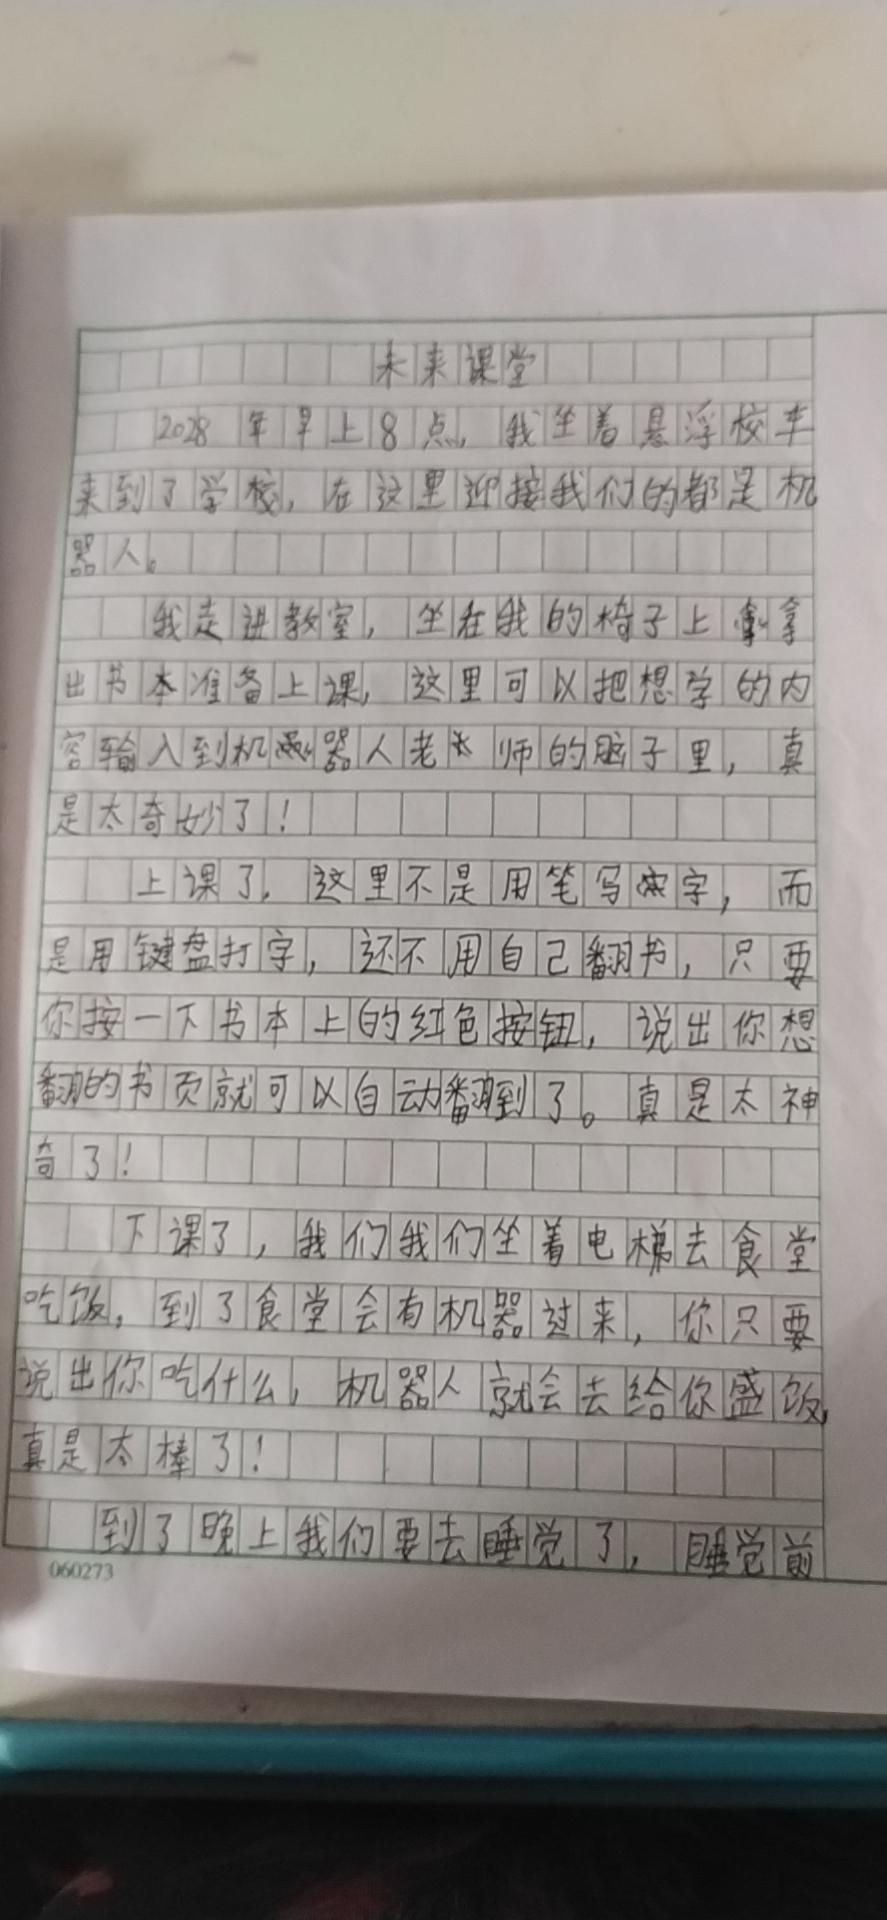 未来课堂
2028年早上8点，我坐着悬浮校车
来到了学校，在这里迎接我们的都是机
器人。
我走进教室，坐在我的椅子上拿
出书本准备上课，这里可以把想学的内
容输入到机器人老师的脑子里，真
是太奇妙了！
上课了，这里不是用笔写字，而
是用键盘打字，还不用自己翻书，只要
你按一下书本上的红色按钮，说出你想
翻的书页就可以自动翻到了。真是太神
奇了！
下课了，我们我们坐着电梯去食堂
吃饭，到了食堂会有机器过来，你只要
说出你吃什么，机器人就会去给你盛饭，
真是太棒了！
到了晚上我们要去睡觉了，睡觉前
060273